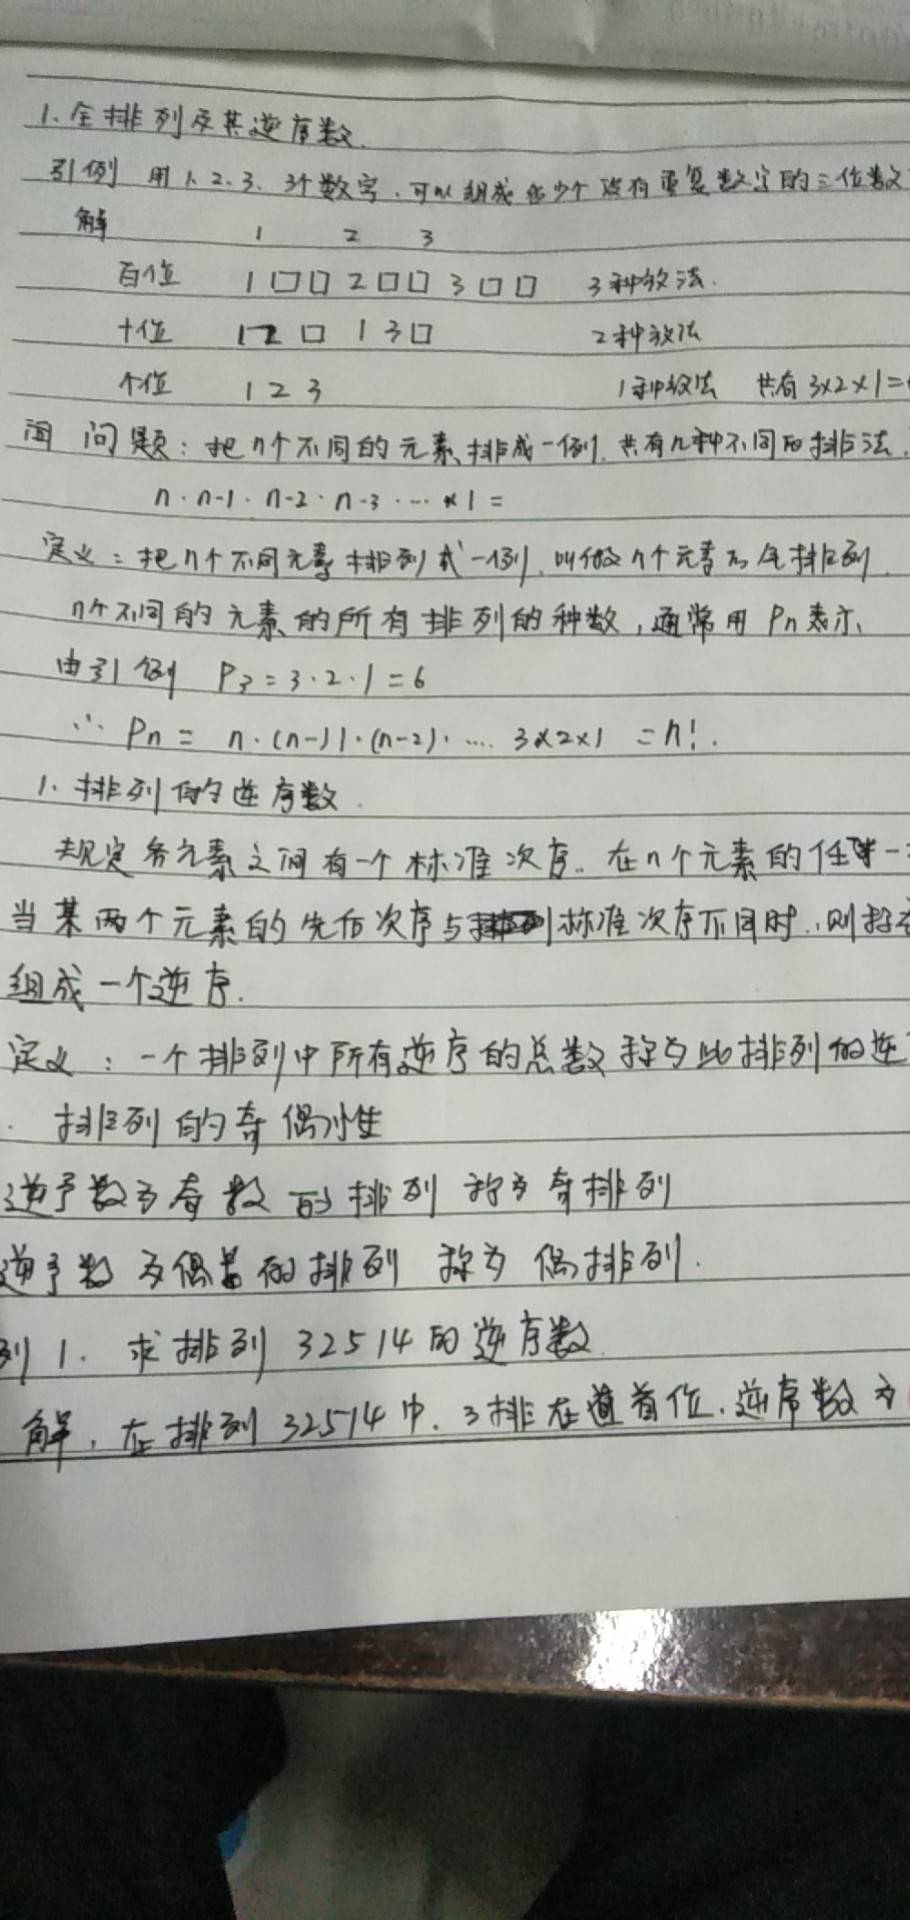 1、全排列及其逆序数.
引例 用1、2、3、3个数字、可以组成多少个没有重复数字的三位数
解 1 2 3
百位 1□□ 2□□ 3□□ 3种放法.
十位 12□ 13□ 2种放法
个位 123 1种放法 共有3×2×1=
问题：把n个不同的元素排成一列，共有几种不同的排法.
n·n-1·n-2·n-3·…*1=
定义：把n个不同元素排列成一列，叫做n个元素的全排列.
n个不同的元素的所有排列的种数，通常用Pn表示、
由引例 P3=3·2·1=6
∴ Pn= n·(n-1)·(n-2)·…. 3×2×1 =n!.
1、排列的逆序数.
规定各元素之间有一个标准次序.. 在n个元素的任一
当某两个元素的先后次序与标准次序不同时.,则称
组成一个逆序.
定义：一个排列中所有逆序的总数称为此排列的逆
. 排列的奇偶性
逆序数为奇数的排列 称为奇排列
逆序数为偶数的排列 称为 偶排列.
列1. 求排列 32514的逆序数.
解，在排列 32514中. 3排在首位.逆序数为